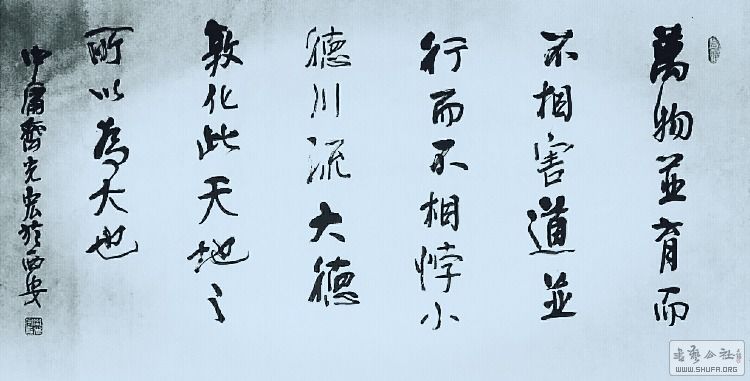 萬物並育而
不相害道並
行而不相悖小
德川流大德
敦化此天地之
所以為大也
中庸齊光宏於西安
書藝公社
WWW.SHUFA.ORG